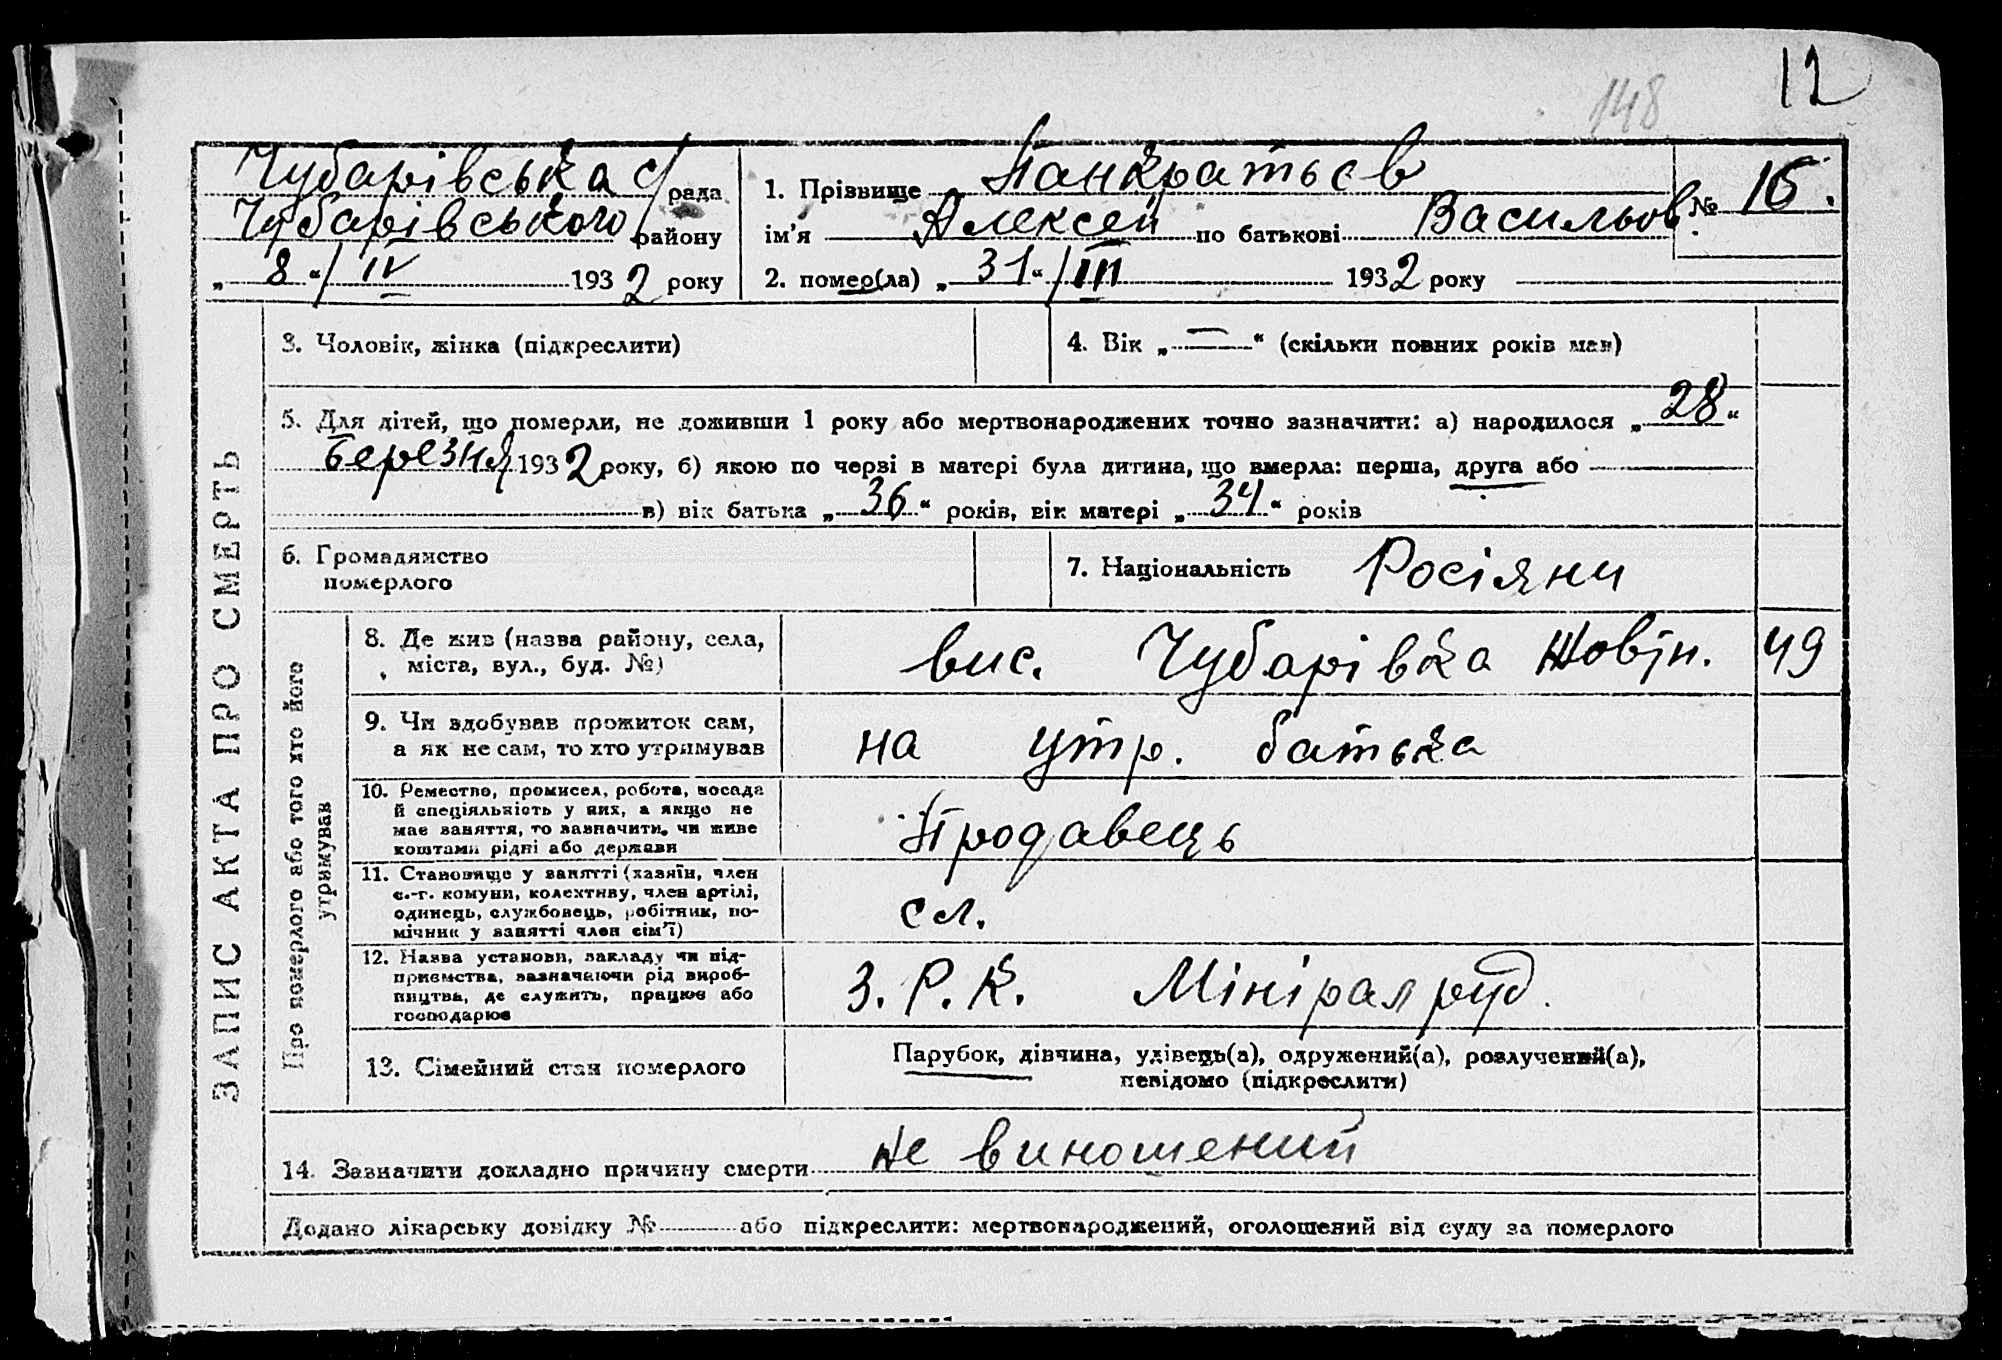 12
148
Чубарівська с/рада
Чубарівського району
„8“/IV 1932 року
1. Прізвище Панкратьєв
ім’я Алексей по батькові Васильов.
№ 16.
2. помер(ла) „31“/III 1932 року
ЗАПИС АКТА ПРО СМЕРТЬ
3. Чоловік, жінка (підкреслити)
4. Вік „—“ (скільки повних років мав)
5. Для дітей, що померли, не доживши 1 року або мертвонароджених точно зазначити: а) народилося „28“
березня 1932 року, б) якою по черзі в матері була дитина, що вмерла: перша, друга або
в) вік батька „36“ років, вік матері „34“ років
6. Громадянство
померлого
7. Національність Росіяни
Про померлого або того хто його
утримував
8. Де жив (назва району, села,
міста, вул., буд. №)
вис. Чубарівка Жовтн. 49
9. Чи здобував прожиток сам,
а як не сам, то хто утримував
на утр. батька
10. Ремество, промисел, робота, посада
й спеціяльність у них, а якщо не
має заняття, то зазначити, чи живе
коштами рідні або держави
Продавець
11. Становище у занятті (хазяїн, член
с.-г. комуни, колективу, член артілі,
одинець, службовець, робітник, по-
мічник у занятті член сім’ї)
сл.
12. Назва установи, закладу чи під-
приємства, зазначаючи рід вироб-
ництва, де служить, працює або
господарює
З. Р. К. Мінірал руд.
13. Сімейний стан померлого
Парубок, дівчина, удівець(а), одружений(а), розлучений(а),
невідомо (підкреслити)
14. Зазначити докладно причину смерти не виношений
Додано лікарську довідку № або підкреслити: мертвонароджений, оголошений від суду за померлого